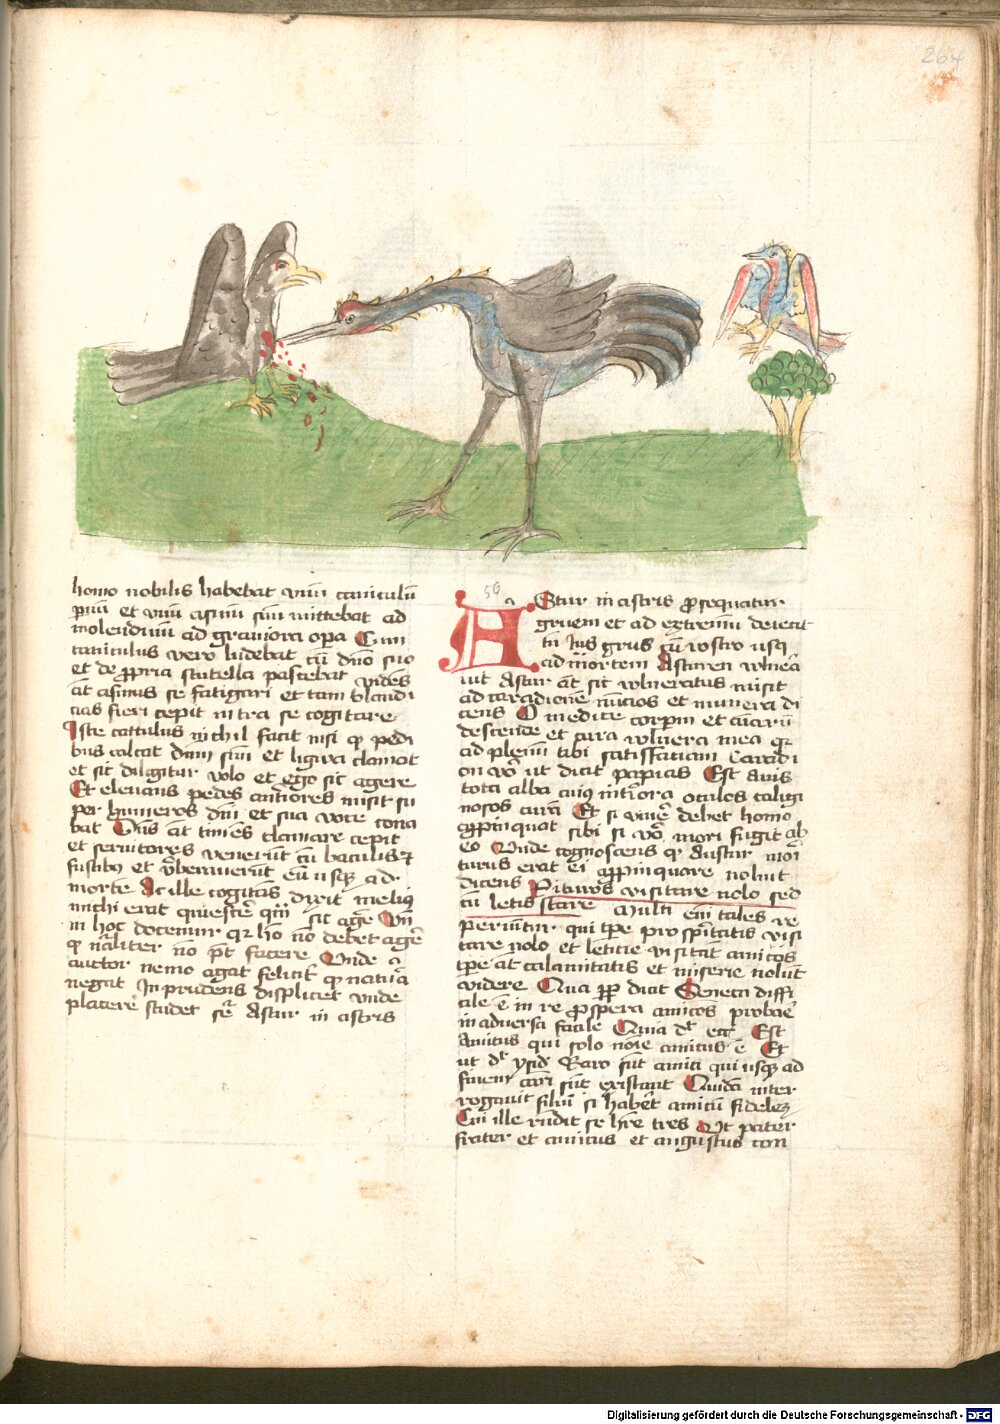 264
homo nobilis habebat unũ caniculũ
pruũ et unũ asinũ suũ mittebat ad
molendinũ ad graviora opa Cum
caniculus vero ludebat cũ dño suo
et de ppria scutella pascebat vidẽs
at asinus se fatigari et tam blandi
cias fieri cepit intra se cogitare
Iste catulus nichil facit nisi qp pedi
bus calcat dnm suũ et ligua clamat
et sic diligitur volo et ego sic agere
Et elevans pedes anteriores misit su
per humeros dñi et sua voce cona
bat Dñs at timẽs clamare cepit
et servitores venerũt cũ baculis et
fustibus et vberaverũt eũ usqz ad
morte At ille cogitãs dixit melius
michi erat quiescere qm sic agere Un
in hoc docemur qr hõ nõ debet agere
qp naliter nõ pt facere Unde
auctor nemo agat felicit qp natura
negat Inprudens displicet unde
placere studet se Astur in astris
56
AStur in astris prosequatur
gruem et ad extremũ deiecit
tñ hus grus cũ rostro usq
ad mortem Asturem vulnera
vit Astur at sic vulneratus misit
ad caradionẽ nũcios et munera di
cens O medice corpm et aĩarũ
descende et cura vulnera mea qr
ad plenũ tibi satisfaciam Caradi
on vo ut dicit papias Est avis
tota alba cuius intiora oculos caligi
nosos curãt Et si vivere debet homo
appinquat sibi si vo mori fugit ab
eo Unde cognoscens qr Austur mori
turus erat ei appinquare noluit
dicens Pituros visitare nolo sed
cũ letis stare Multi eĩ tales re
periũtur qui tpe prospitatis visi
tare nolo et leticie visitãt amicos
tpe at calamitatis et miserie nolũt
videre Qua pp dicit Seneca diffi
cile ẽ in re prospera amicos probare
in adversa facile Quia dr ecc Est
Amicus qui solo noĩe amicus ẽ Et
ut dr ysid Raro sũt amici qui usqz ad
finem cari sũt existant Quidã inter
rogavit filiũ si haberet amicũ fidelez
Cui ille rndit se hre tres Ut pater
frater et amicus et angustus con
Digitalisierung gefördert durch die Deutsche Forschungsgemeinschaft - DFG